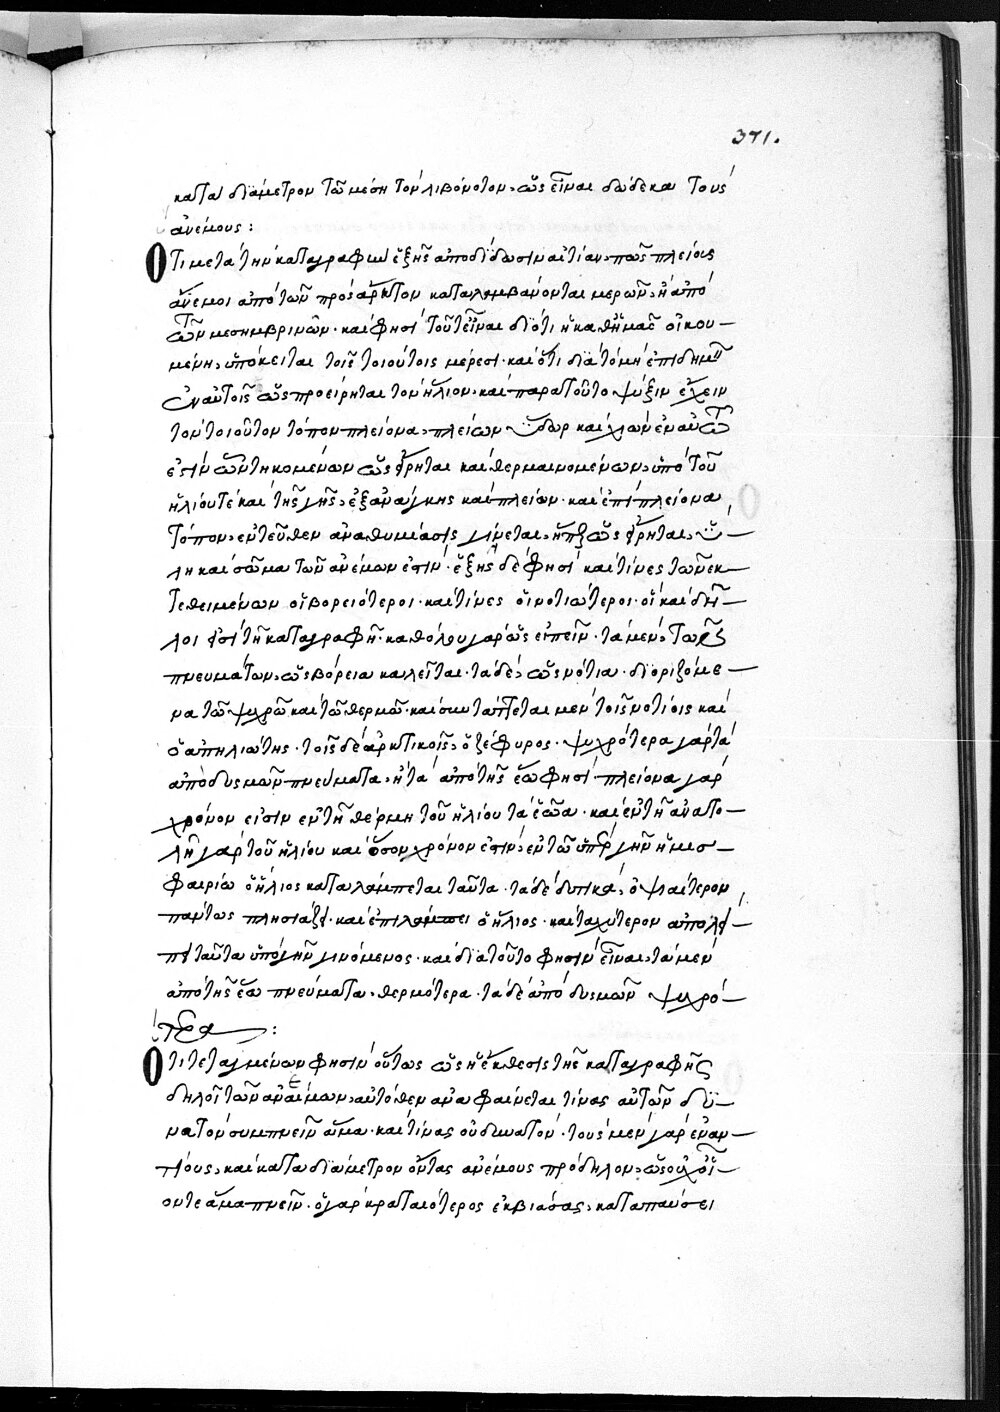 371.
κατὰ διάμετρον τῶ μέση τὸν λιβόνοτον, ὡς εἶναι δώδεκα τοὺς
ἀνέμους:
Ὅτι μετὰ τὴν καταγραφὴν ἑξῆς ἀποδίδωσιν αἰτίαν, πῶς πλείους
ἄνεμοι ἀπὸ τῶν πρὸς ἄρκτον καταλαμβάνονται μερῶν, ἢ ἀπὸ
τῶν μεσημβρινῶν· καὶ φησὶ τοῦτ εἶναι διότι ἡ καθ ἡμᾶς οἰκου-
μένη, ὑπόκειται τοῖς τοιούτοις μέρεσι· καὶ ὅτι διὰ τὸ μὴ ἐπιδημεῖν
ἐν αὐτοῖς ὡς προείρηται τὸν ἥλιον· καὶ παρὰ τοῦτο ψύξιν ἔχειν
τὸν τοιοῦτον τόπον πλείονα, πλεῖον ὕδωρ καὶ χιὼν ἐν αὐτῶ
ἐστὶν ὧν τηκομένων ὡς εἴρηται καὶ θερμαινομένων, ὑπὸ τοῦ
ἡλίου τὲ καὶ τῆς γῆς, ἐξ ἀνάγκης καὶ πλείων· καὶ ἐπὶ πλείονα
τόπον, ἐντεῦθεν ἀναθυμίασις γίνεται, ἥπερ ὡς εἴρηται, ὕ-
λη καὶ σῶμα τῶν ἀνέμων ἐστίν· ἑξῆς δέ φησὶ καὶ τίνες τῶν ἐκ-
τεθειμένων οἱ βορειότεροι· καὶ τίνες οἱ νοτιώτεροι· οἱ καὶ δῆ-
λοι εἰσὶ τῆ καταγραφῆ· καθόλου γὰρ ὡς εἰπεῖν· τὰ μὲν, τῶν
πνευμάτων, ὡς βόρεια καλεῖται· τὰ δὲ, ὡς νότια· διοριζόμε-
να τῶ ψυχρῶ καὶ τῶ θερμῶ· καὶ συντάττεται μὲν τοῖς νοτίοις καὶ
ὁ ἀπηλιώτης· τοῖς δὲ ἀρκτικοῖς, ὁ ζέφυρος· ψυχρότερα γὰρ τὰ
ἀπὸ δυσμῶν πνεύματα, ἢ τὰ ἀπὸ τῆς ἕω φησὶ πλείονα γὰρ
χρόνον εἰσὶν ἐν τῆ θέρμη τοῦ ἡλίου τὰ ἑῶα· καὶ ἐν τῆ ἀνατο-
λῆ γὰρ τοῦ ἡλίου καὶ ὅσον χρόνον ἐστὶν, ἐν τῶ ὑπὲρ γῆν ἡμισ-
φαιρίω ὁ ἥλιος καταλάμπεται ταῦτα· τὰ δὲ δυτικὰ, ὀψιαίτερον
πάντως πλησιάζει· καὶ ἐπιλάμπει ὁ ἥλιος· καὶ ταχύτερον ἀπολεί-
πει ταῦτα ὑπὸ γῆν γινόμενος· καὶ διατοῦτο φησὶν εἶναι, τὰ μὲν
ἀπὸ τῆς ἕω πνεύματα, θερμότερα· τὰ δὲ ἀπὸ δυσμῶν ψυχρό-
τερα:
Ὅτι τεταγμένων φησὶν οὕτως ὡς ἡ ἔκθεσις τῆς καταγραφῆς
δηλοῖ τῶν ἀνέμων, αὐτόθεν ἀναφαίνεται τίνας αὐτῶν δυ-
νατὸν συμπνεῖν ἅμα· καὶ τίνας οὐ δυνατόν· τοὺς μὲν γὰρ ἐναν-
τίους, καὶ κατὰ διάμετρον ὄντας ἀνέμους πρόδηλον, ὡς οὐχ οἷ-
όντε ἅμα πνεῖν· ὁ γὰρ κραταιότερος ἐκβιάσας, καταπαύσει